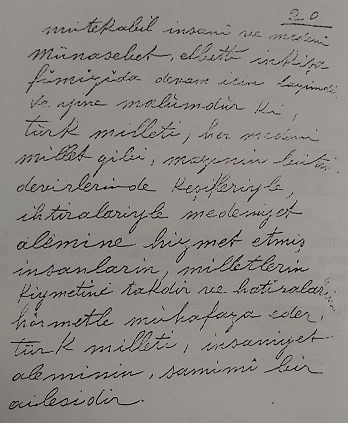 20
mütekabil insanî ve medenî
münasebet, elbette inkişa
fımızıda devam için lazımdır
ve yine malûmdur ki,
türk milleti, her medenî
millet gibi, mazinin bütün
devirlerinde keşifleriyle,
ihtiralariyle medeniyet
âlemine hizmet etmiş
insanların, milletlerin
kıymetini takdir ve hatıralarını
hörmetle mühafaza eder;
türk milleti, insaniyet
aleminin, samimî bir
ailesidir.